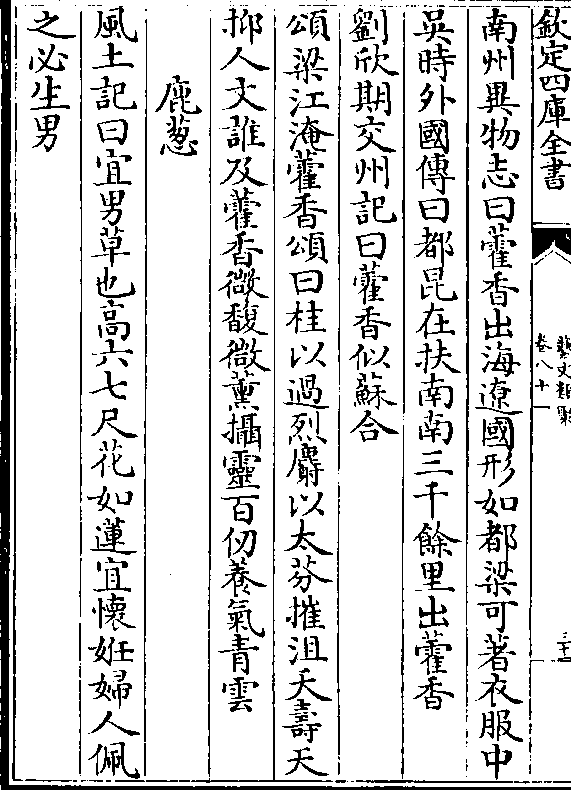 欽定四庫全書
藝文類聚
卷八十一
三十二
南州異物志曰藿香出海遼國形如都梁可著衣服中
吳時外國傳曰都昆在扶南南三千餘里出藿香
劉欣期交州記曰藿香似蘇合
頌梁江淹藿香頌曰桂以過烈麝以太芬摧沮夭壽天
抑人文誰及藿香微馥微薰攝靈百仞養氣青雲
鹿葱
風土記曰宜男草也高六七尺花如蓮宜懷妊婦人佩
之必生男